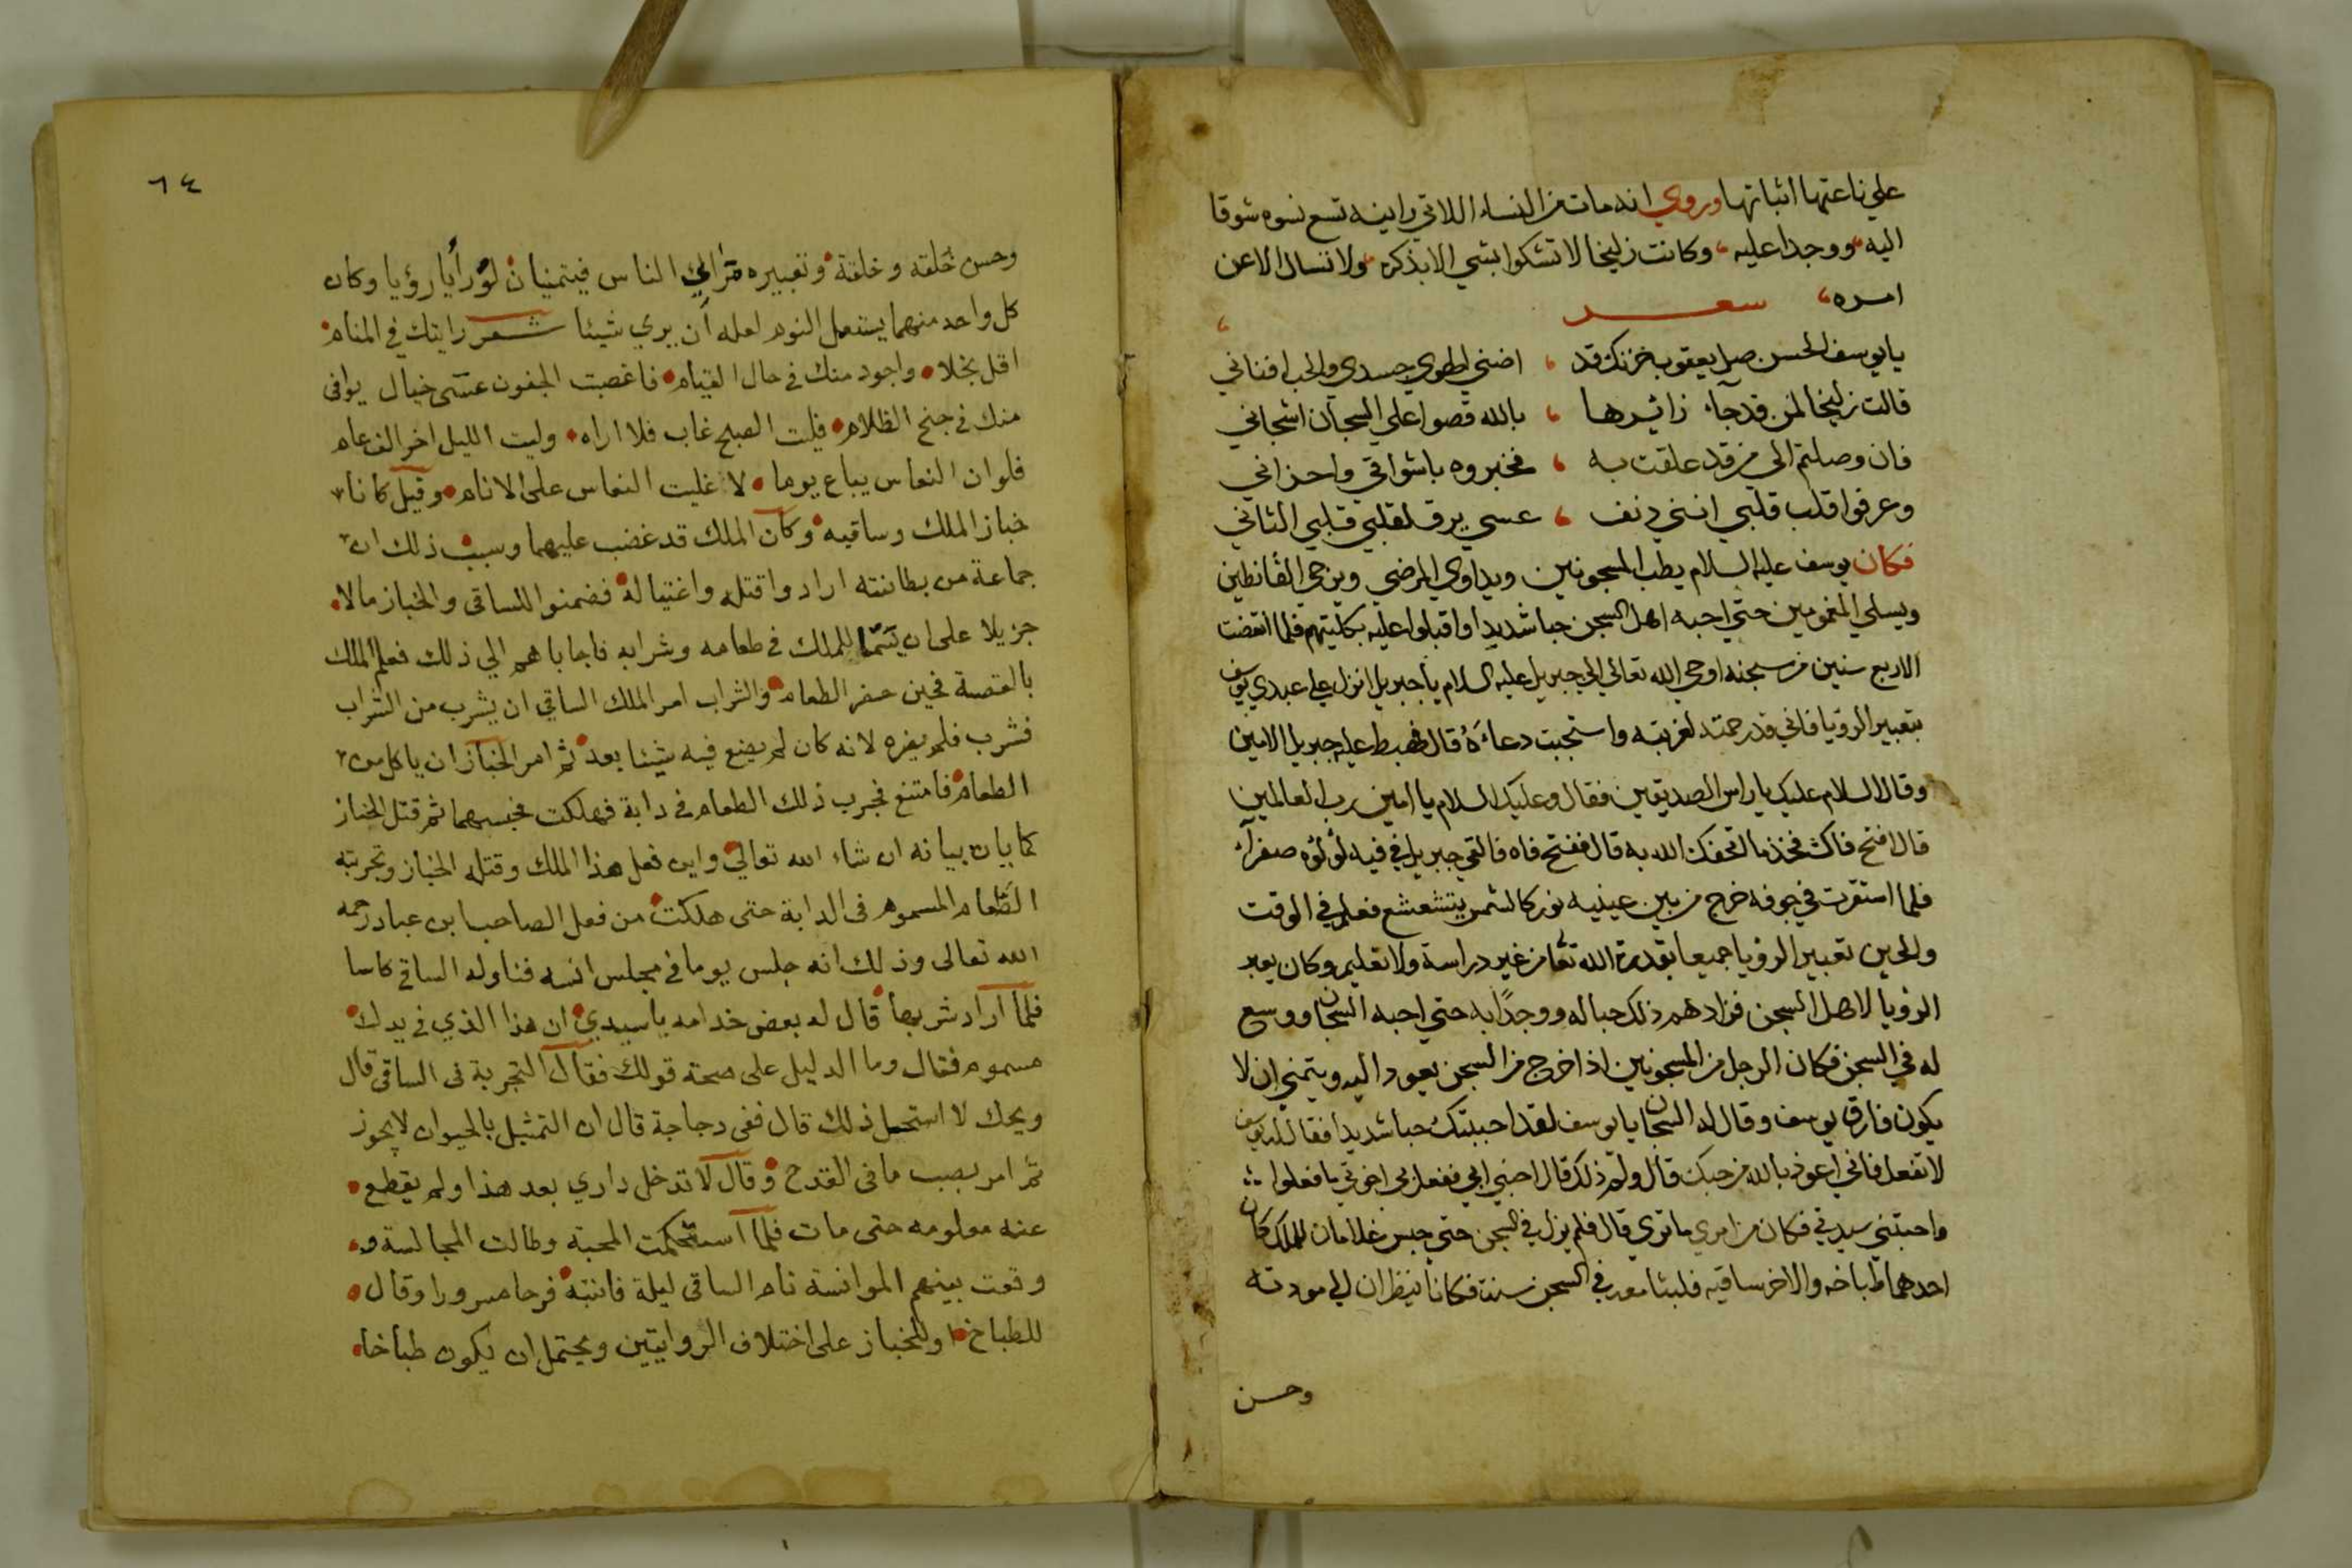 علي ناعتها اثباتها وروي انه مات من النساء اللاتي راينه تسع نسوه شوقا
اليه ووجدا عليه وكانت زليخا لا تشكوا بشي الا بذكره ولا تسال الا عن
امره شعر
يا يوسف الحسن صل يعقوب حزنك قد اضني لطوي جسدي والحب افناني
قالت زليخا لمن قد جآء زائرها بالله قصوا علي السجان اشجاني
فان وصلتم الي من قد علقت به فخبروه باشواقي واحزاني
وعرفوا قلب قلبي انني دنف عسي يرق لقلبي قلبي الثاني
فكان يوسف عليه السلام يطب المسجونين ويداوي المرضي ويرجي القانطين
ويسلي المغمومين حتي احبه اهل السجن حبا شديدا واقبلوا عليه بكليتهم فلما انقضت
الاربع سنين من سجنه اوحي الله تعالي الي جبريل عليه السلام يا جبريل انزل علي عبدي يوسف
بتعبير الرؤيا فاني قد رحمته لغربته واستجبت دعاءه قال فهبط عليه جبريل الامين
وقال السلام عليك يا راس الصديقين فقال وعليك السلام يا امين رب العالمين
قال افتح فاك فخذ ما اتحفك الله به قال ففتح فاه فالقي جبريل في فيه لؤلؤه صفرآء
فلما استقرت في جوفه خرج من بين عينيه نور كالشمس يتشعشع فعلم في الوقت
والحين تعبير الرؤيا جميعا بقدرة الله تعا من غير دراسة ولا تعليم وكان يعبر
الرؤيا لاهل السجن فزادهم ذلك حبا له ووجدًا به حتي احبه السجان ووسع
له في السجن فكان الرجل من المسجونين اذا خرج من السجن يعود اليه ويتمني ان لا
يكون فارق يوسف وقال له السجان يا يوسف لقد احببتك حبا شديدا فقال له يوسف
لا تفعل فاني اعوذ بالله من حبك قال ولم ذلك قال احبني ابي ففعل بي اخوتي ما فعلوا
واحبتني سيدتي فكان من امري ما تري قال فلم يزل في السجن حتي حبس غلامان للملك كان
احدهما طباخه والاخر ساقيه فلبثا معه في السجن سنة فكانا ينظران الي مودته
وحسن
٦٤
وحسن خُلقه وخلقة وتعبيره الناس فيتمنيان لو رأيا رؤيا وكان
كل واحد منهما يستعمل النوم لعله أن يري شيئا شعر رايتك في المنام
اقل بخلا واجود منك في حال القيام فاغصبت الجفون عسى خيال يوافى
منك في جنح الظلام فليت الصبح غاب فلا اراه وليت الليل اخر الف عام
فلو ان النعاس يباع يوما لا غليت النعاس على الانام وقيل كانا
خباز الملك وساقيه وكان الملك قد غضب عليهما وسبب ذلك ان
جماعة من بطانته ارادوا قتله واغتياله فضمنوا للساقى والخباز مالا
جزيلا على ان يسّما للملك في طعامه وشرابه فاجاباهم الي ذلك فعلم الملك
بالقصة فحين حضر الطعام والشراب امر الملك الساقي ان يشرب من الشراب
فشرب فلم يضره لانه كان لم يضع فيه شيئا بعد ثم امر الخباز ان ياكل من
الطعام فامتنع فجرب ذلك الطعام في دابة فهلكت فحبسهما ثم قتل الخباز
كما يان بيانه ان شاء الله تعالي واين فعل هذا الملك وقتله الخباز وتجربته
الطعام المسموم فى الدابة حتى هلكت من فعل الصاحب ابن عباد رحمه
الله تعالى وذلك انه جلس يوما في مجلس انسه فناوله الساقي كاسا
فلما اراد شربها قال له بعض خدامه يا سيدي ان هذا الذي في يدك
مسموم فقال وما الدليل على صحة قولك فقال التجربة فى الساقى قال
ويحك لا استحل ذلك قال ففى دجاجة قال ان التمثيل بالحيوان لا يجوز
ثم امر بصب ما فى القدح وقال لا تدخل داري بعد هذا ولم يقطع
عنه معلومه حتى مات فلما استحكمت المحبة وطالت المجالسة و
وقعت بينهم الموانسة نام الساقى ليلة فانتبه فرحا مسرورا وقال
للطباخ او للخباز على اختلاف الروايتين ويحتمل ان يكون طباخا